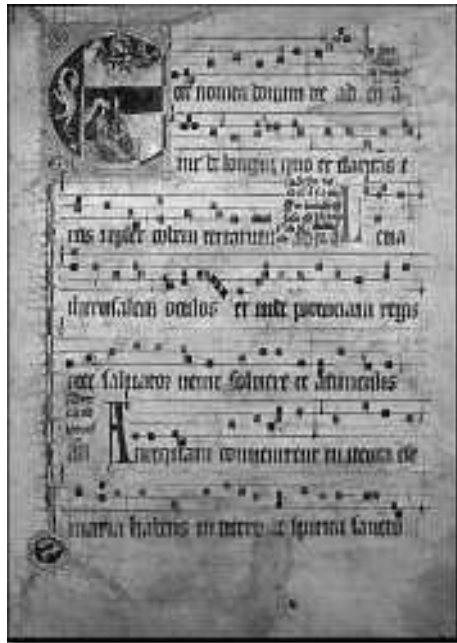 nomen domini ve ad
nit de longinquo et claritas e
ius replet orbem terrarum Leva
iherusalem oculos et vide potenciam regis
ecce salvator venit solvere te a vinculis
Antequam convenirent inventa est
maria habens in utero de spiritu sancto